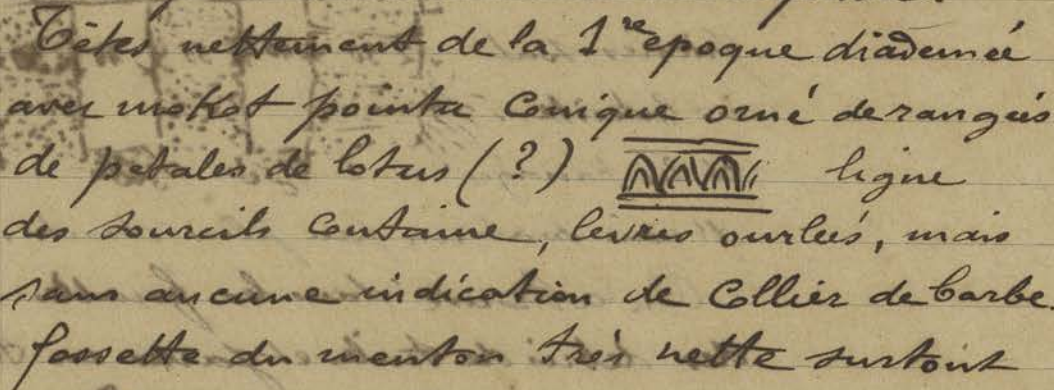 Têtes nettement de la 1re époque diadémée
avec mokot pointu conique orné de rangées
de petales de lotus (?) ligne
des sourcils continue, levres ourlées, mais
sans aucune indication de collier de barbe.
fossette du menton très nette surtout